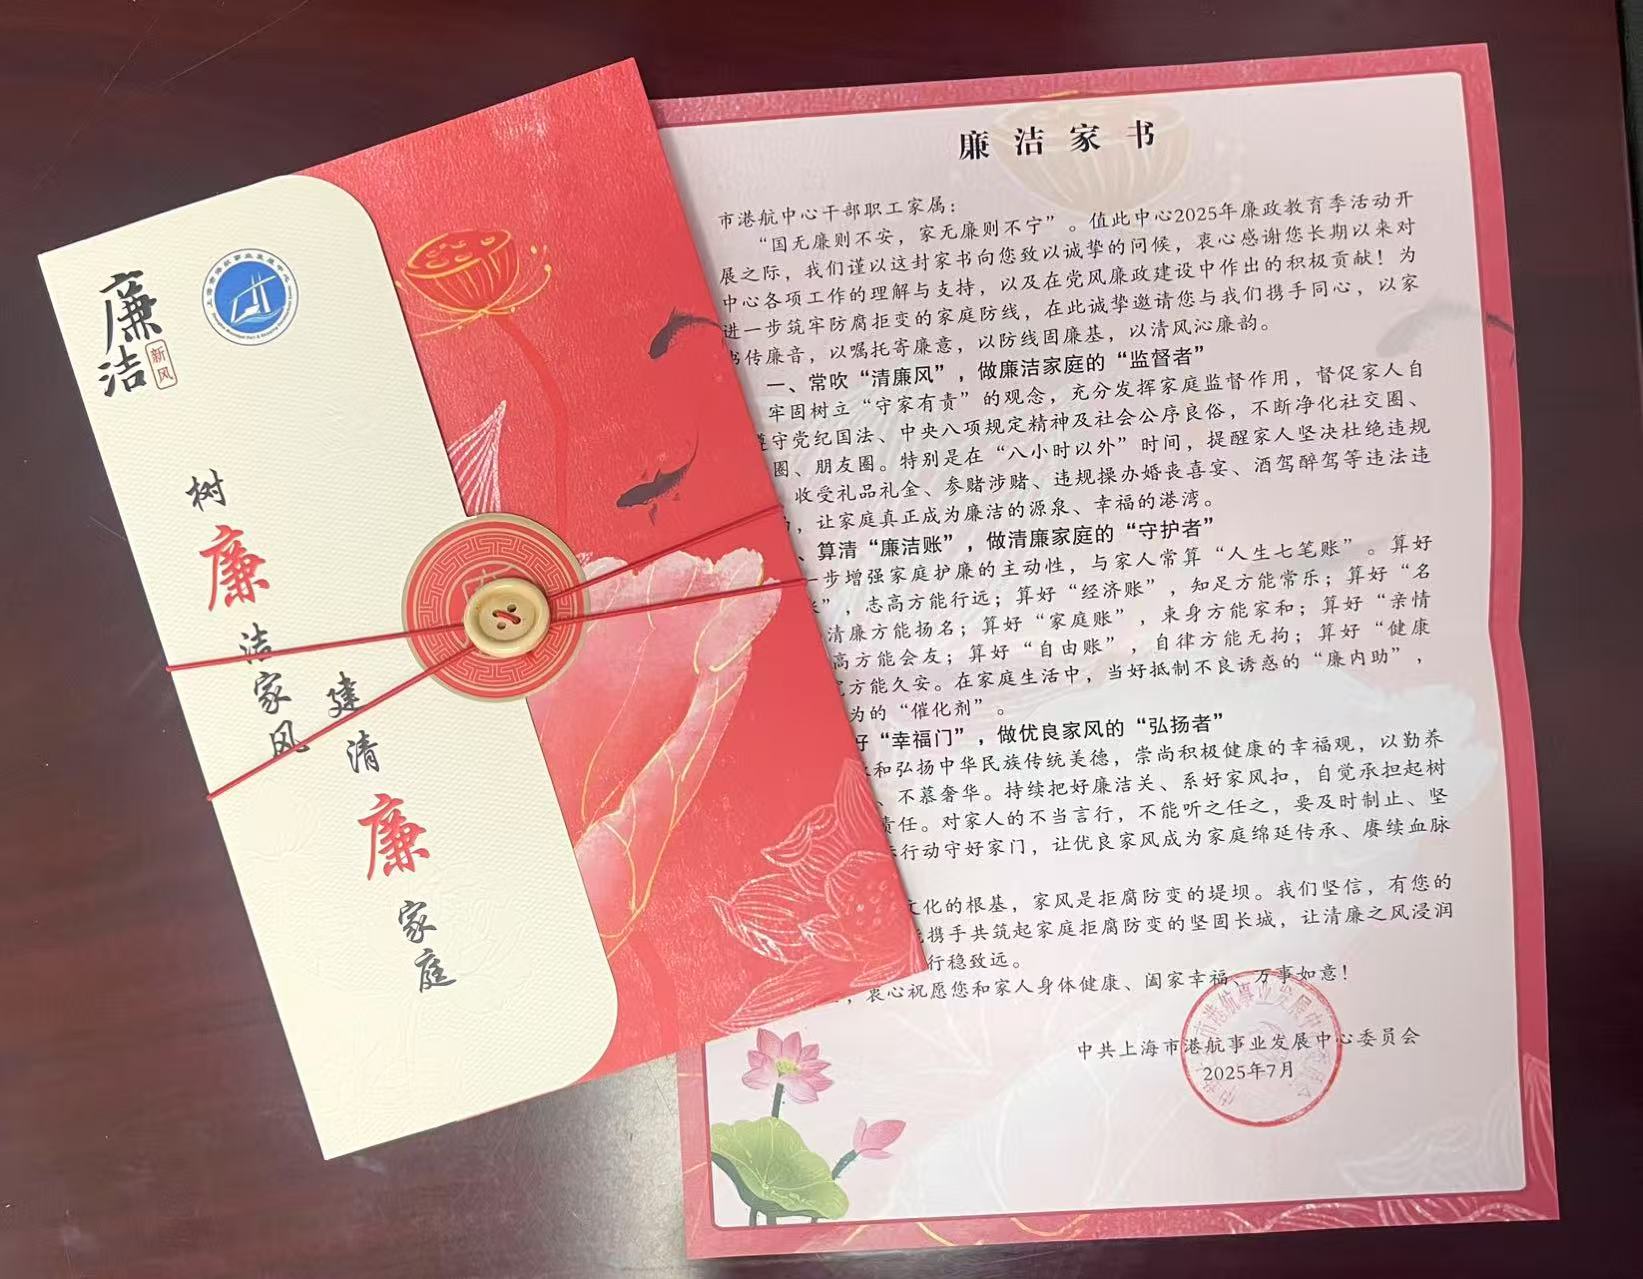 廉洁
新风
树
廉
洁
家
风
建
清
廉
家
庭
廉洁家书
市港航中心干部职工家属：
“国无廉则不安，家无廉则不宁”。值此中心2025年廉政教育季活动开
展之际，我们谨以这封家书向您致以诚挚的问候，衷心感谢您长期以来对
中心各项工作的理解与支持，以及在党风廉政建设中作出的积极贡献！为
进一步筑牢防腐拒变的家庭防线，在此诚挚邀请您与我们携手同心，以家
书传廉音，以嘱托寄廉意，以防线固廉基，以清风沁廉韵。
一、常吹“清廉风”，做廉洁家庭的“监督者”
牢固树立“守家有责”的观念，充分发挥家庭监督作用，督促家人自
遵守党纪国法、中央八项规定精神及社会公序良俗，不断净化社交圈、
圈、朋友圈。特别是在“八小时以外”时间，提醒家人坚决杜绝违规
收受礼品礼金、参赌涉赌、违规操办婚丧喜宴、酒驾醉驾等违法违
，让家庭真正成为廉洁的源泉、幸福的港湾。
、算清“廉洁账”，做清廉家庭的“守护者”
一步增强家庭护廉的主动性，与家人常算“人生七笔账”。算好
”，志高方能行远；算好“经济账”，知足方能常乐；算好“名
清廉方能扬名；算好“家庭账”，束身方能家和；算好“亲情
高方能会友；算好“自由账”，自律方能无拘；算好“健康
方能久安。在家庭生活中，当好抵制不良诱惑的“廉内助”，
为的“催化剂”。
好“幸福门”，做优良家风的“弘扬者”
和弘扬中华民族传统美德，崇尚积极健康的幸福观，以勤养
、不慕奢华。持续把好廉洁关、系好家风扣，自觉承担起树
责任。对家人的不当言行，不能听之任之，要及时制止、坚
行动守好家门，让优良家风成为家庭绵延传承、赓续血脉
文化的根基，家风是拒腐防变的堤坝。我们坚信，有您的
携手共筑起家庭拒腐防变的坚固长城，让清廉之风浸润
行稳致远。
，衷心祝愿您和家人身体健康、阖家幸福、万事如意！
中共上海市港航事业发展中心委员会
2025年7月